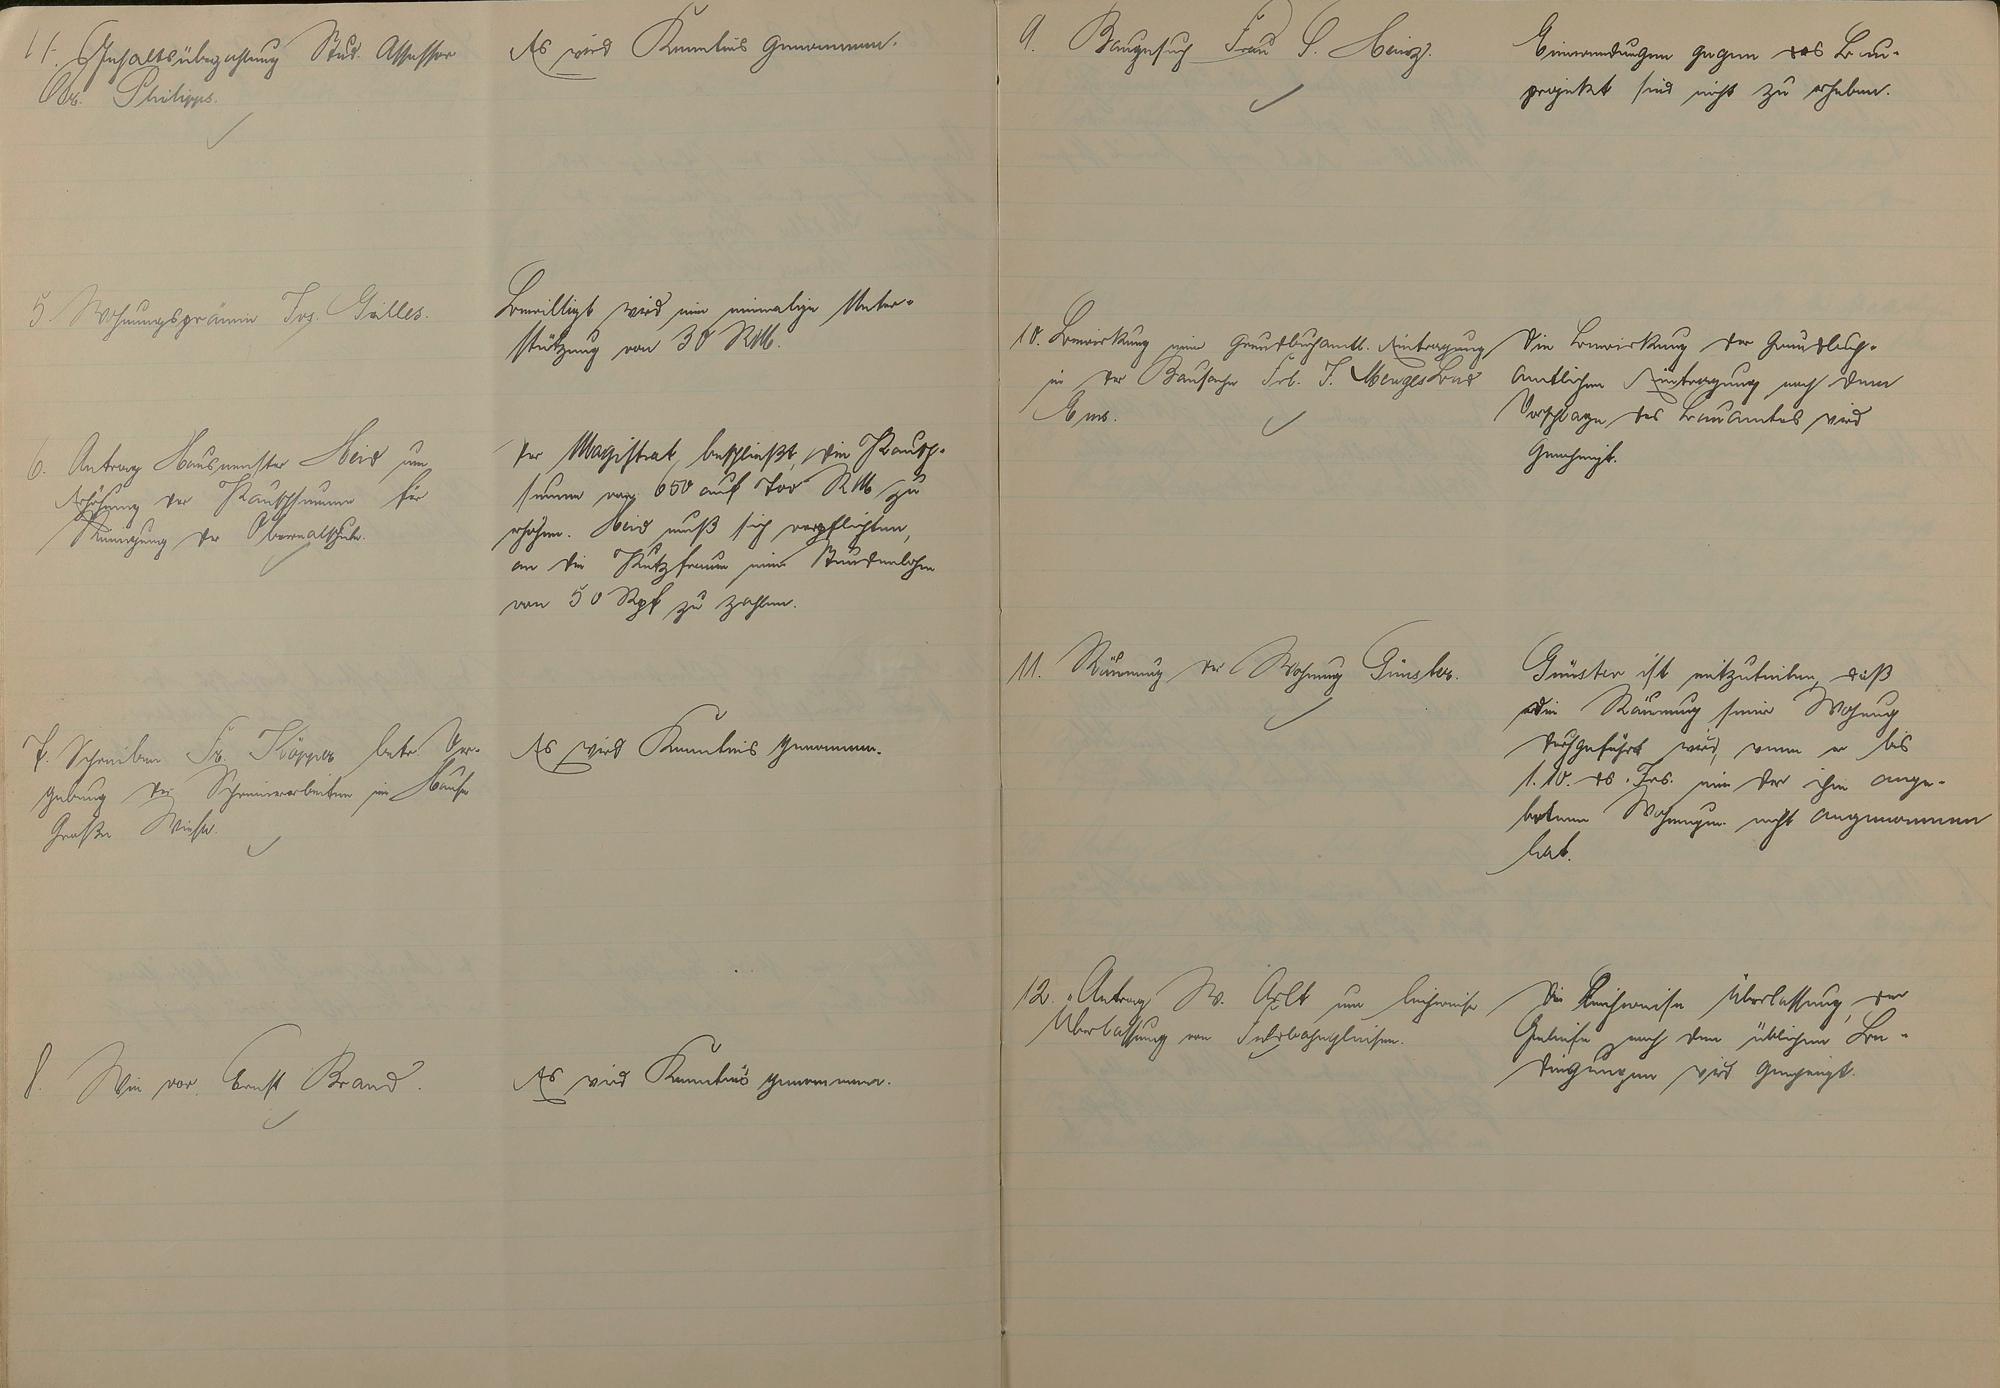 4. Gehaltsüberzahlung Stud. Assessor
Dr. Philipps.
Es wird Kenntnis genommen.
5. Wohnungsprämie Jos. Gilles.
Bewilligt wird eine einmalige Unter-
stützung von 30 RM.
6. Antrag Hausmeister Heid um
Erhöhung der Pauschsumme für
Reinigung der Oberrealschule.
Der Magistrat beschließt, die Pausch-
summe von 650 auf 700 RM zu
erhöhen. Heid muß sich verpflichten,
an die Putzfrauen einen Stundenlohn
von 50 Rpf zu zahlen.
7. Schreiben Fr. Köpper betr. Ver-
gebung der Schreinerarbeiten im Hause
Große Wiese.
Es wird Kenntnis genommen.
8. Wie vor. Ernst Brand.
Es wird Kenntnis genommen.
9. Baugesuch Frau S. Heinz.
Einwendungen gegen das Bau-
projekt sind nicht zu erheben.
10. Bewirkung einer grundbuchamtl. Eintragung
in der Bausache Frl. J. Menges Bad
Ems.
Die Bewirkung der Grundbuch-
amtlichen Eintragung nach dem
Vorschlage des Bauamtes wird
genehmigt.
11. Räumung der Wohnung Günster.
Günster ist mitzuteilen, daß
die Räumung seiner Wohnung
durchgeführt wird, wenn er bis
1.10. ds. Jrs. eine der ihm ange-
botenen Wohnungen nicht angenommen
hat.
12. Antrag W. Arlt um leihweise
Überlassung von Feldbahngleisen.
Die leihweise Überlassung der
Geleise nach den üblichen Be-
dingungen wird genehmigt.